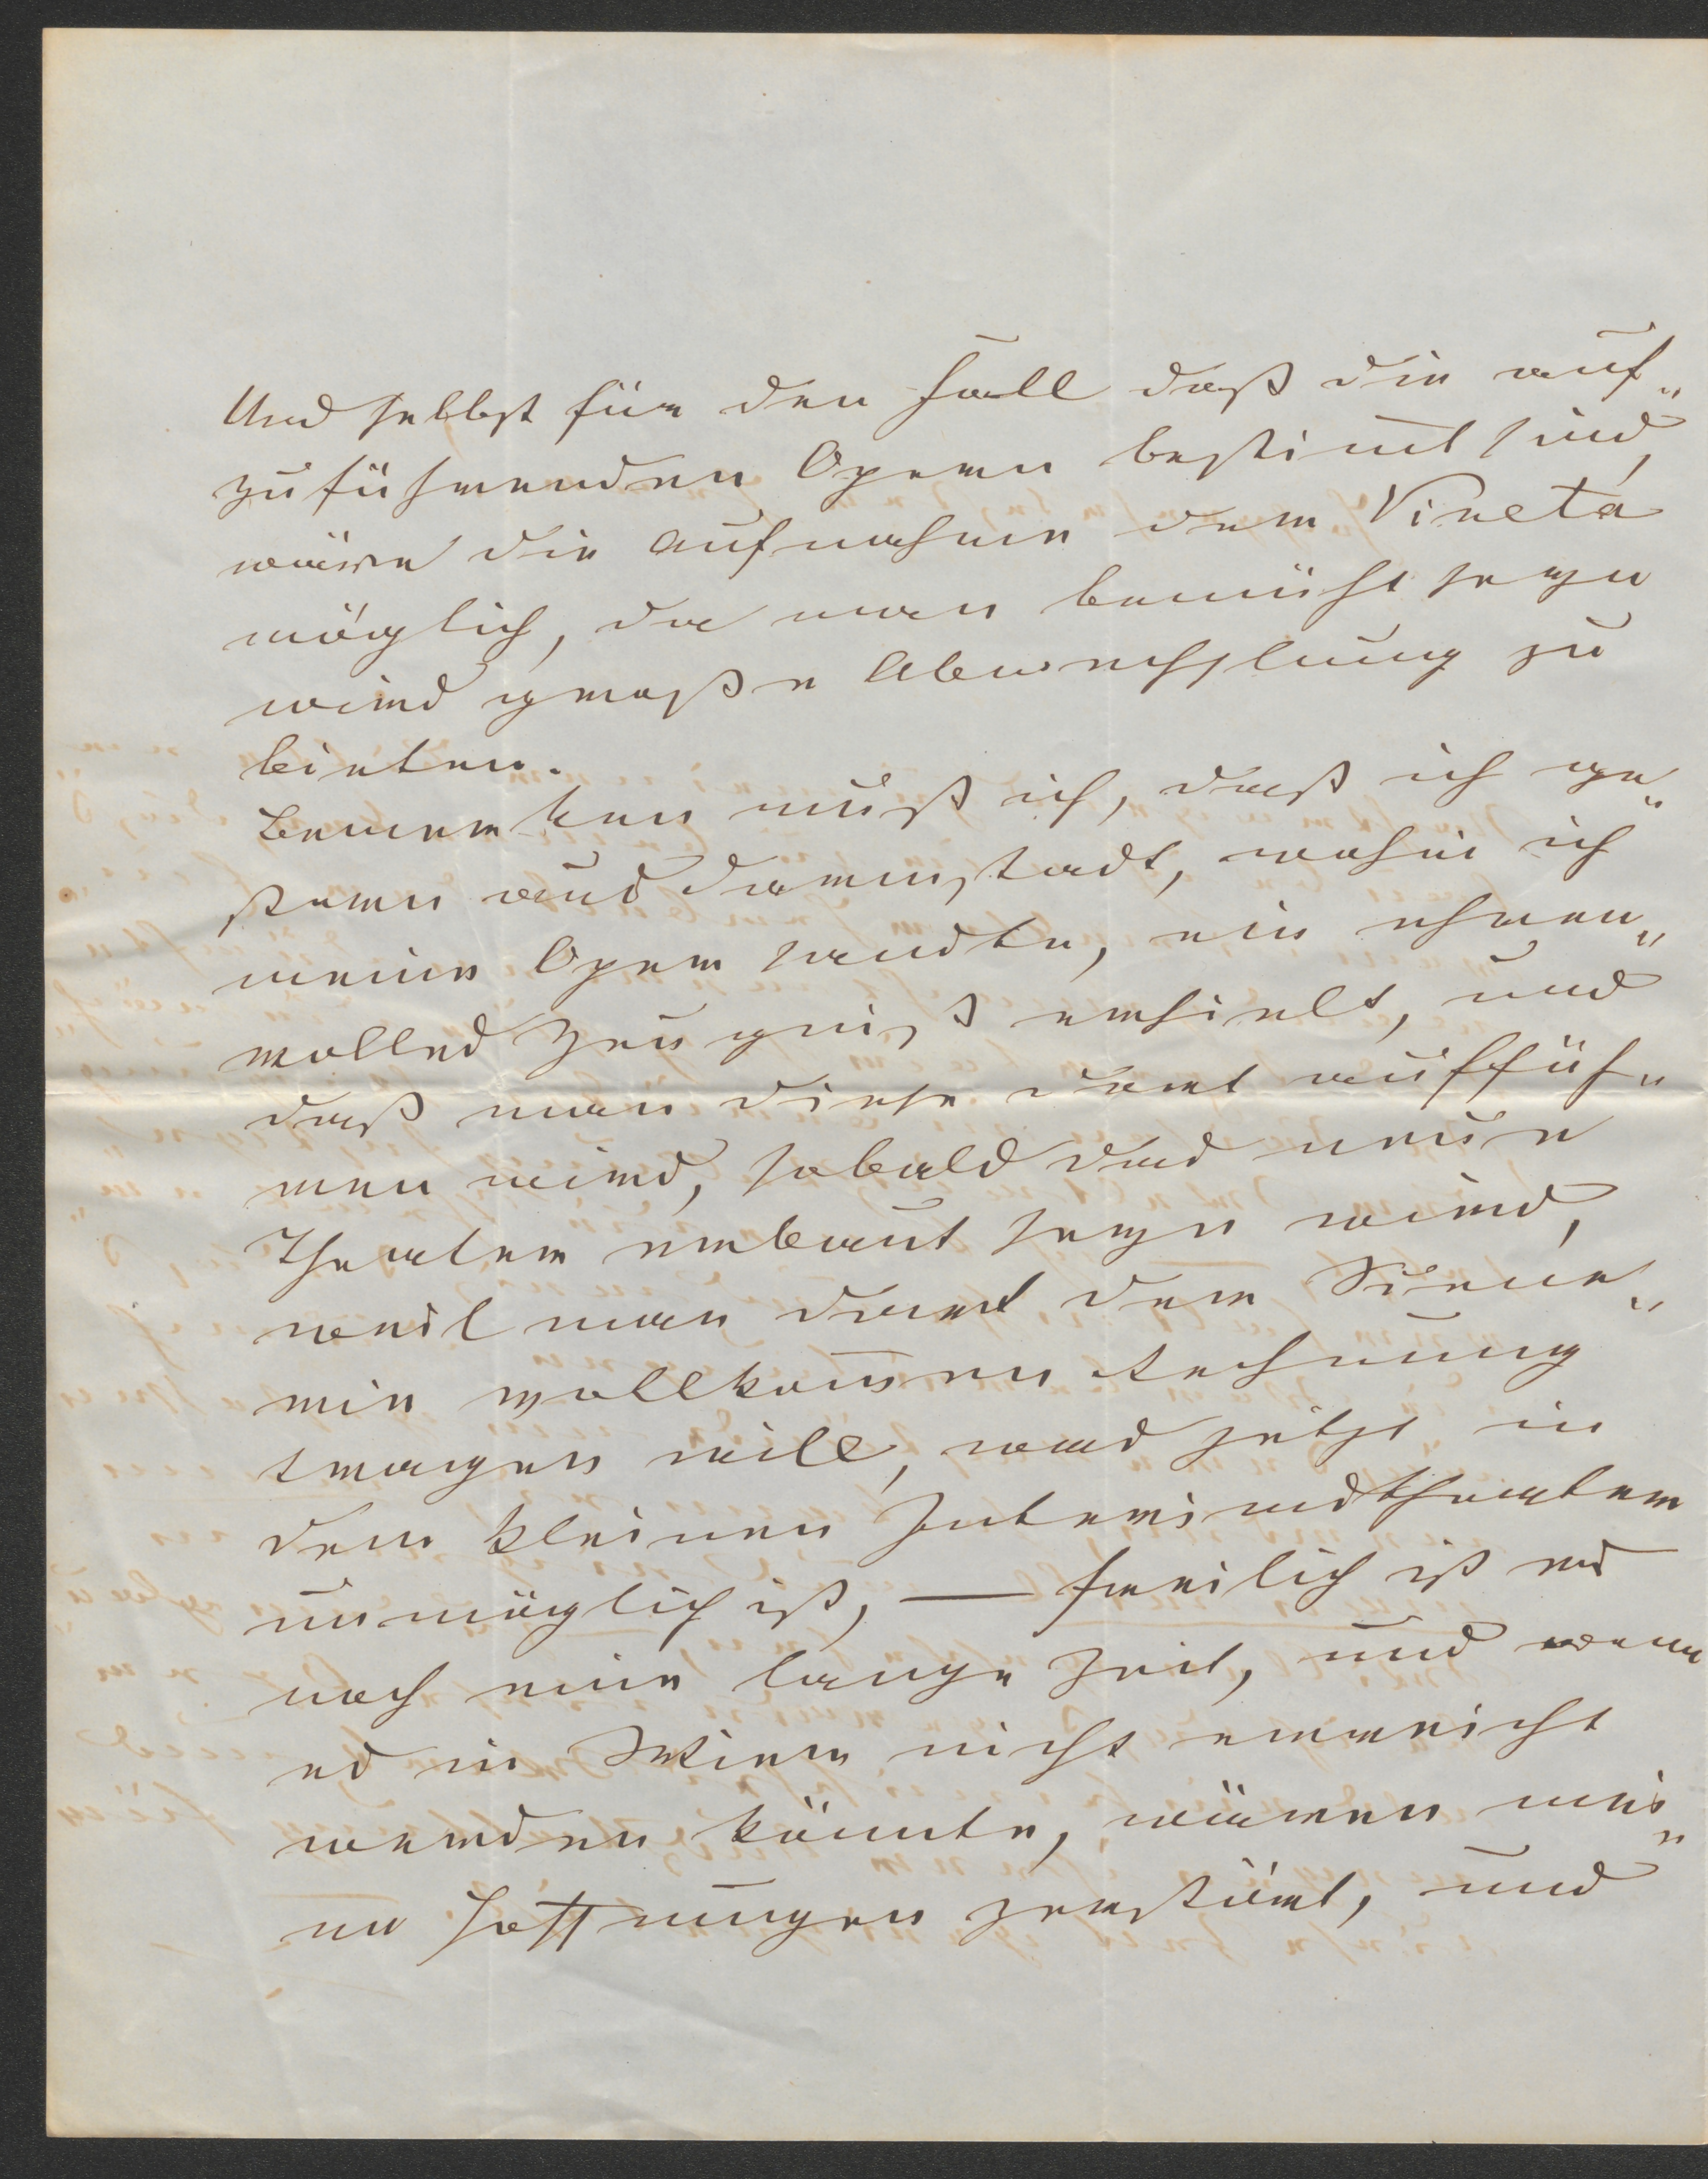 Und selbst für den Fall daß die auf„
zuführenden Opern bestim̅t sind,
wäre die Aufnahme der Vineta
möglich, da man bemüht seyn
wird große Abwechslung zu
bieten.
Bemerken muß ich, daß ich ge„
stern aus Darmstadt, wohin ich
meine Oper sandte, ein ehren„
volles Zeugniß erhielt, und
daß man diese dort auffüh„
ren wird, sobald das neue
Theater erbaut seyn wird,
weil man dort der Scene„
rie vollkom̅en Rechnung
tragen will, was jetzt in
dem kleinen Interimstheater
unmöglich ist, — freilich ist es
noch eine lange Zeit, und wenn
es in Wien nicht erreicht
werden könnte, wären mei„
ne Hoffnungen zerstört, und